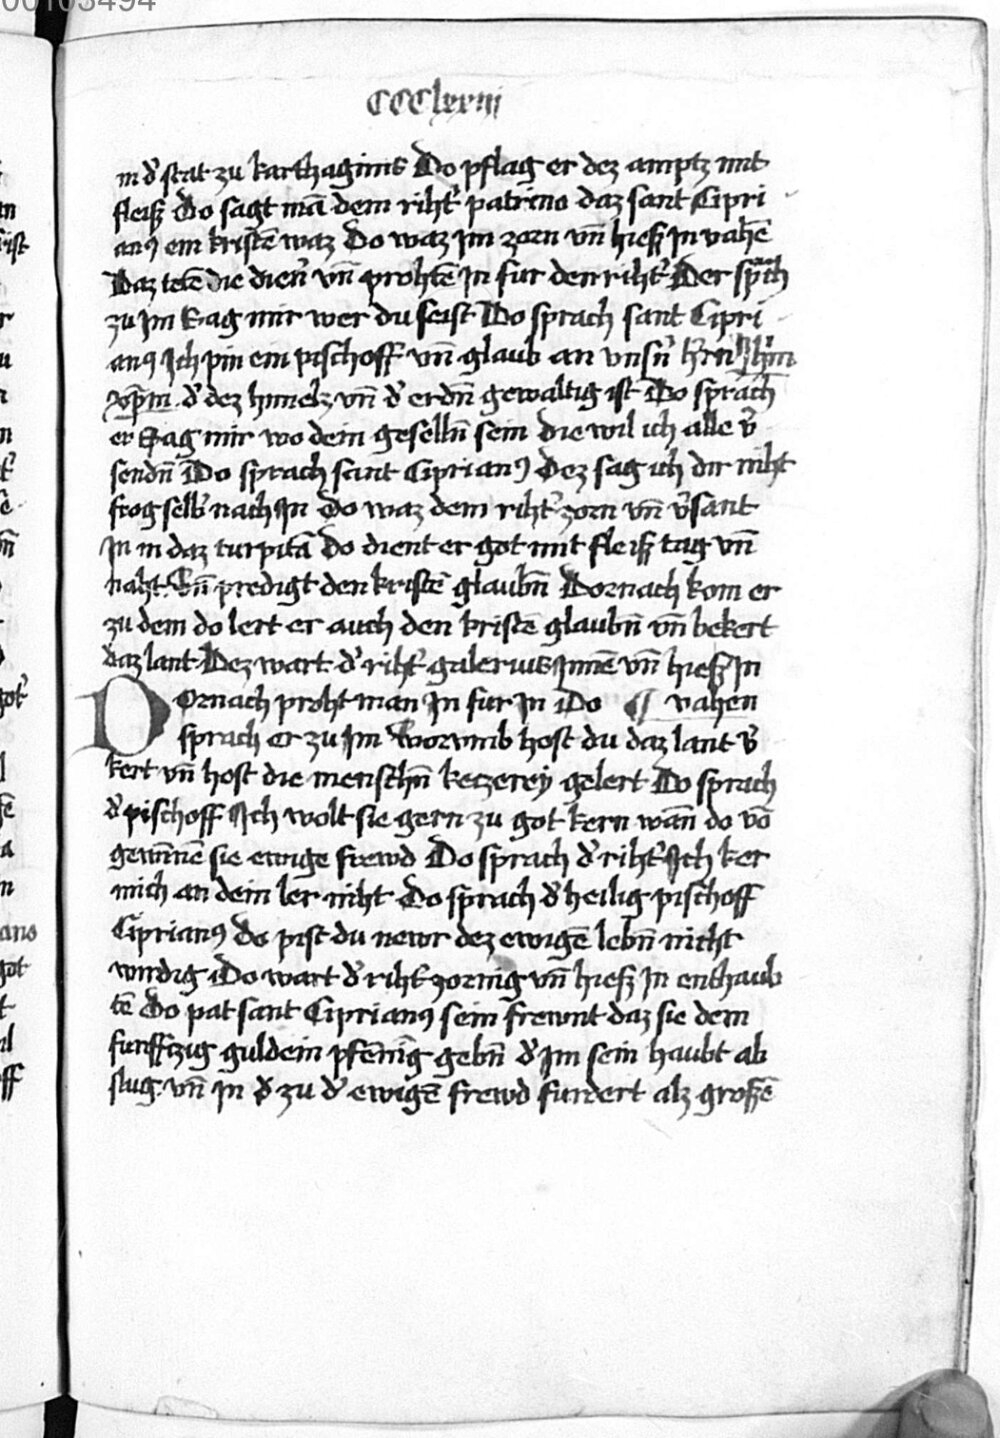 00103494
CCClxxiij
in d' stat zu karthaginis Do pflag er dez amptz mit
fleisz Do sagt mā dem riht' patrino daz sant Cipri
anꝰ ein kristē waz Do waz jm zorn vn̄ hiesz jn vahē
Daz tetē die dien' vn̄ prohtē jn fur den riht' Der sprach
zu jm Sag mir wer du seist Do sprach sant Cipri
anꝰ Ich pin ein pischoff vn̄ glaub an vnsn' hern Jhm
xp̄m d' dez himelz vn̄ d' erdn̄ gewaltig ist Do sprach
er Sag mir wo dein geselln̄ sein die wil ich alle v'
sendn̄ Do sprach sant Ciprianꝰ Dez sag ich dir niht
frog selb' nach jn Do waz dem riht' zorn vn̄ v'sant
jn in daz turpitā Do dient er got mit fleisz tag vn̄
naht Vn̄ predigt den kristē glaubn̄ Dornach kom er
zu dem do lert er auch den kristē glaubn̄ vn̄ bekert
daz lant Dez wart d' riht' galerius jnnē vn̄ hiesz jn
Dornach proht man jn fur jn Do ¶ vahen
sprach er zu jm Worvmb host du daz lant v'
kert vn̄ host die menschn̄ keczerey gelert Do sprach
d' pischoff Ich wolt sie gern zu got kern wān do vō
gewinnē sie ewige frewd Do sprach d' riht' Ich ker
mich an dein ler niht Do sprach d' heilig pischoff
Ciprianꝰ Do pist du newr dez ewigē lebn̄ nicht
wirdig Do wart d' riht' zornig vn̄ hiesz jn enthaub
tē Do pat sant Ciprianꝰ sein frewnt daz sie dem
funffczig guldein pfēnig gebn̄ d' jm sein haubt ab
slug vn̄ jn zu d' ewigē frewd furdert alz groszē